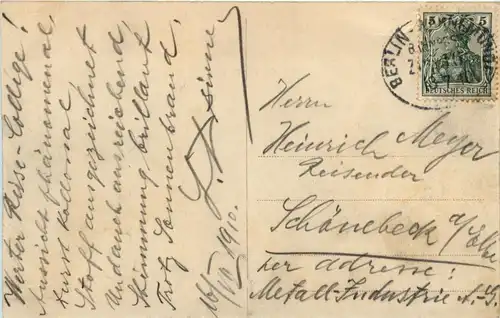 Werter Reise-Collége!
Aussicht phänomenal,
Durst kollosal
Stoff ausgezeichnet
Andauch ausreichend
Stimmung brillant
Trotz Sonnenbrand,
1910.
BERLIN-
5 5
DEUTSCHES REICH
Herrn
Heinrich Meyer
Reisender
Schönebeck a/Elbe
per Adresse:
Metall-Industrie A.-G.